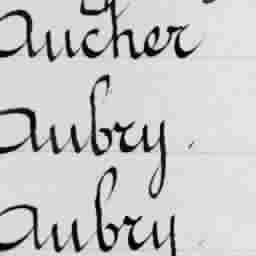 Aucher
Aubry.
Aubry.